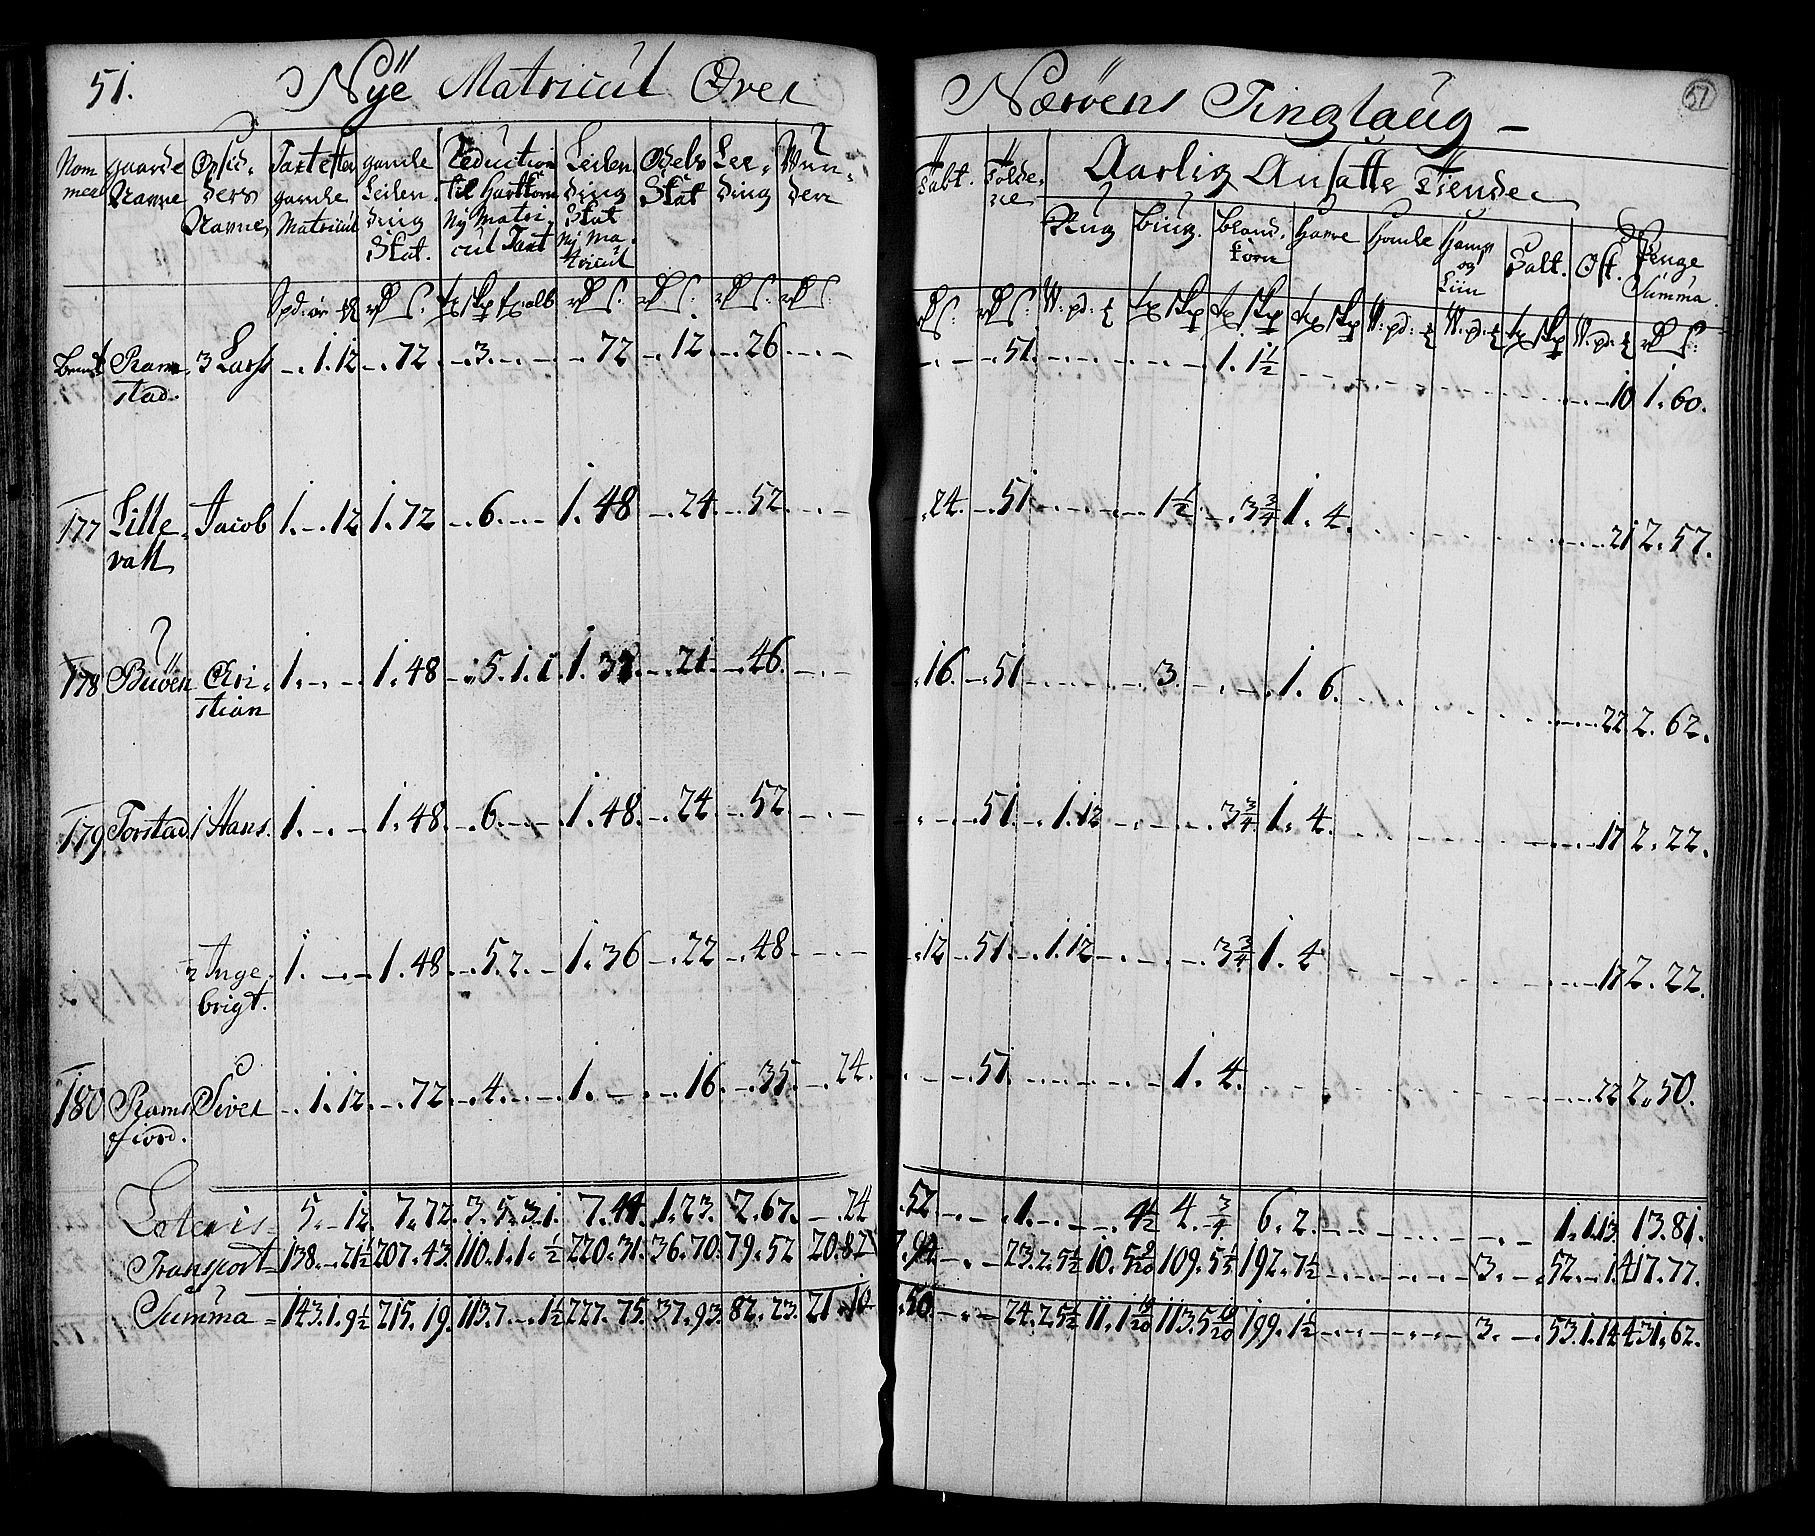 51. Nÿe Matricul Over Nærøens Tinglaug – 51
Nom mer | gaarde Navne | Opsid- ders Navne | Taxt efter gamle Matricul | gamle Leilen- ding Skat. | Reduction til Hartkorn Nÿ Matri- cul Taxt | Leilen- ding Skat Nÿ Ma- tricul | Odels Skat | Leeding
Aarlig Ansatte Tiende
Rug | Bÿug. | bland- korn | Havre | Homle | Hamp og Liin | Salt. | Ost. | Penge Summa.
Ram- 3 Lars -.1.12 -.72 -.3.-.- -.72 -.12 -.26 -.- -.- -.51. 1.1½ 10 1.60.
stad.
177 Lille- Jacob 1.-.12 1.72 -.6.-.- 1.48 -.24 -.52. .24. -.51 1½ -.3¾ 1.4. 21 2.57.
vatt
178 Buöen Chri- 1.-.- 1.48 -.5.1.1 -.21. -.46. .16. -.51 3. 1.6. 22 2.62.
stian
179 Torstad. 1 Hans. 1.-.- 1.48. -.6.-.- 1.48. -.24 -.52. 51. 1.12 3¾ 1.4. 17 2.22.
2 Inge- 1.-.- 1.48. -.5.2.- 1.36 -.22 -.48 .12 51. 1.12 3¾ 1.4 17 2.22.
brigt.
180 Rams Siver -.1.12. -.72. -.4.-.- 1.-.- -.16. -.35. -.24. -.51. 1.4. 22 2.50.
fiord.
Lateris 5.-.12. 7.72. 3.5.3.1. 7.44 1.23. 2.67. -.24 .52 1.-.- 4½ 4.¾ 6.2. 1.1.13. 13.81.
Transport 138.-.21½ 207.43. 110.1.1.½ 220.31. 36.70. 79.52 20.82 23.2.5½ 109.5 192.7½ 3. 52.-.1. 417.77.
Summa 143.1.9½ 215.19. 113.7.-.1½ 227.75. 37.93. 82.23. 21.10 .50. 24.2.5½ 199.1½ 3. 53.1.14 431.62.